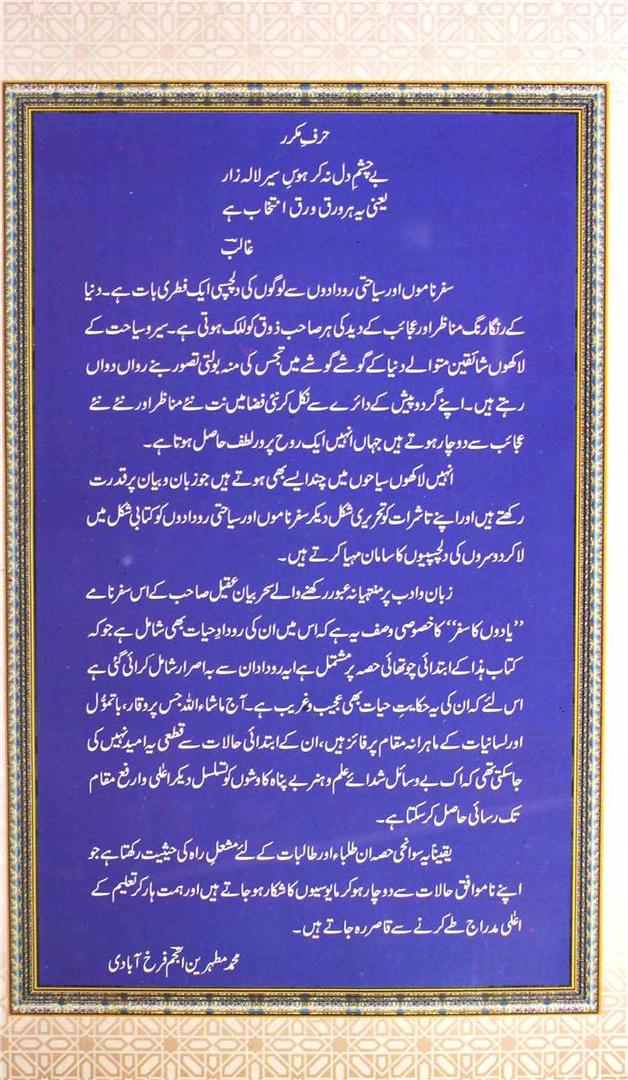 حرفِ مکرر
بے چشمِ دل نہ کر ہوسِ سیر لالہ زار
یعنی یہ ہر ورق ورق انتخاب ہے
غالبؔ
سفرناموں اور سیاحتی رودادوں سے لوگوں کی دلچسپی ایک فطری بات ہے۔ دنیا
کے رنگارنگ مناظر اور عجائب کے دید کی ہر صاحب ذوق کو للک ہوتی ہے۔ سیر و سیاحت کے
لاکھوں شائقین متوالے دنیا کے گوشے گوشے میں تجسس کی منہ بولتی تصویر بنے رواں دواں
رہتے ہیں۔ اپنے گرد و پیش کے دائرے سے نکل کر نئی فضا میں نت نئے مناظر اور نئے نئے
عجائب سے دوچار ہوتے ہیں جہاں انہیں ایک روح پرور لطف حاصل ہوتا ہے۔
انہیں لاکھوں سیاحوں میں چند ایسے بھی ہوتے ہیں جو زبان و بیان پر قدرت
رکھتے ہیں اور اپنے تاثرات کو تحریری شکل دیکر سفرناموں اور سیاحتی رودادوں کو کتابی شکل میں
لا کر دوسروں کی دلچسپیوں کا سامان مہیا کرتے ہیں۔
زبان و ادب پر منتہیانہ عبور رکھنے والے سحر بیان عقیل صاحب کے اس سفرنامے
’’یادوں کا سفر‘‘ کا خصوصی وصف یہ ہے کہ اس میں ان کی رودادِ حیات بھی شامل ہے جو کہ
کتاب ہذا کے ابتدائی چوتھائی حصہ پر مشتمل ہے یہ روداد ان سے بہ اصرار شامل کرائی گئی ہے
اس لئے کہ ان کی یہ حکایتِ حیات بھی عجیب و غریب ہے۔ آج ماشاء اللہ جس پر وقار، با تموّل
اور لسانیات کے ماہرانہ مقام پر فائز ہیں، ان کے ابتدائی حالات سے قطعی یہ امید نہیں کی
جاسکتی تھی کہ اک بے وسائل شدائے علم و ہنر بے پناہ کاوشوں کو تسلسل دیکر اعلٰی وارفع مقام
تک رسائی حاصل کر سکتا ہے۔
یقیناً یہ سوانحی حصہ ان طلباء اور طالبات کے لئے مشعلِ راہ کی حیثیت رکھتا ہے جو
اپنے ناموافق حالات سے دوچار ہو کر مایوسیوں کا شکار ہو جاتے ہیں اور ہمت ہار کر تعلیم کے
اعلٰی مدراج طے کرنے سے قاصر رہ جاتے ہیں۔
محمد مطہرین انجم فرخ آبادی